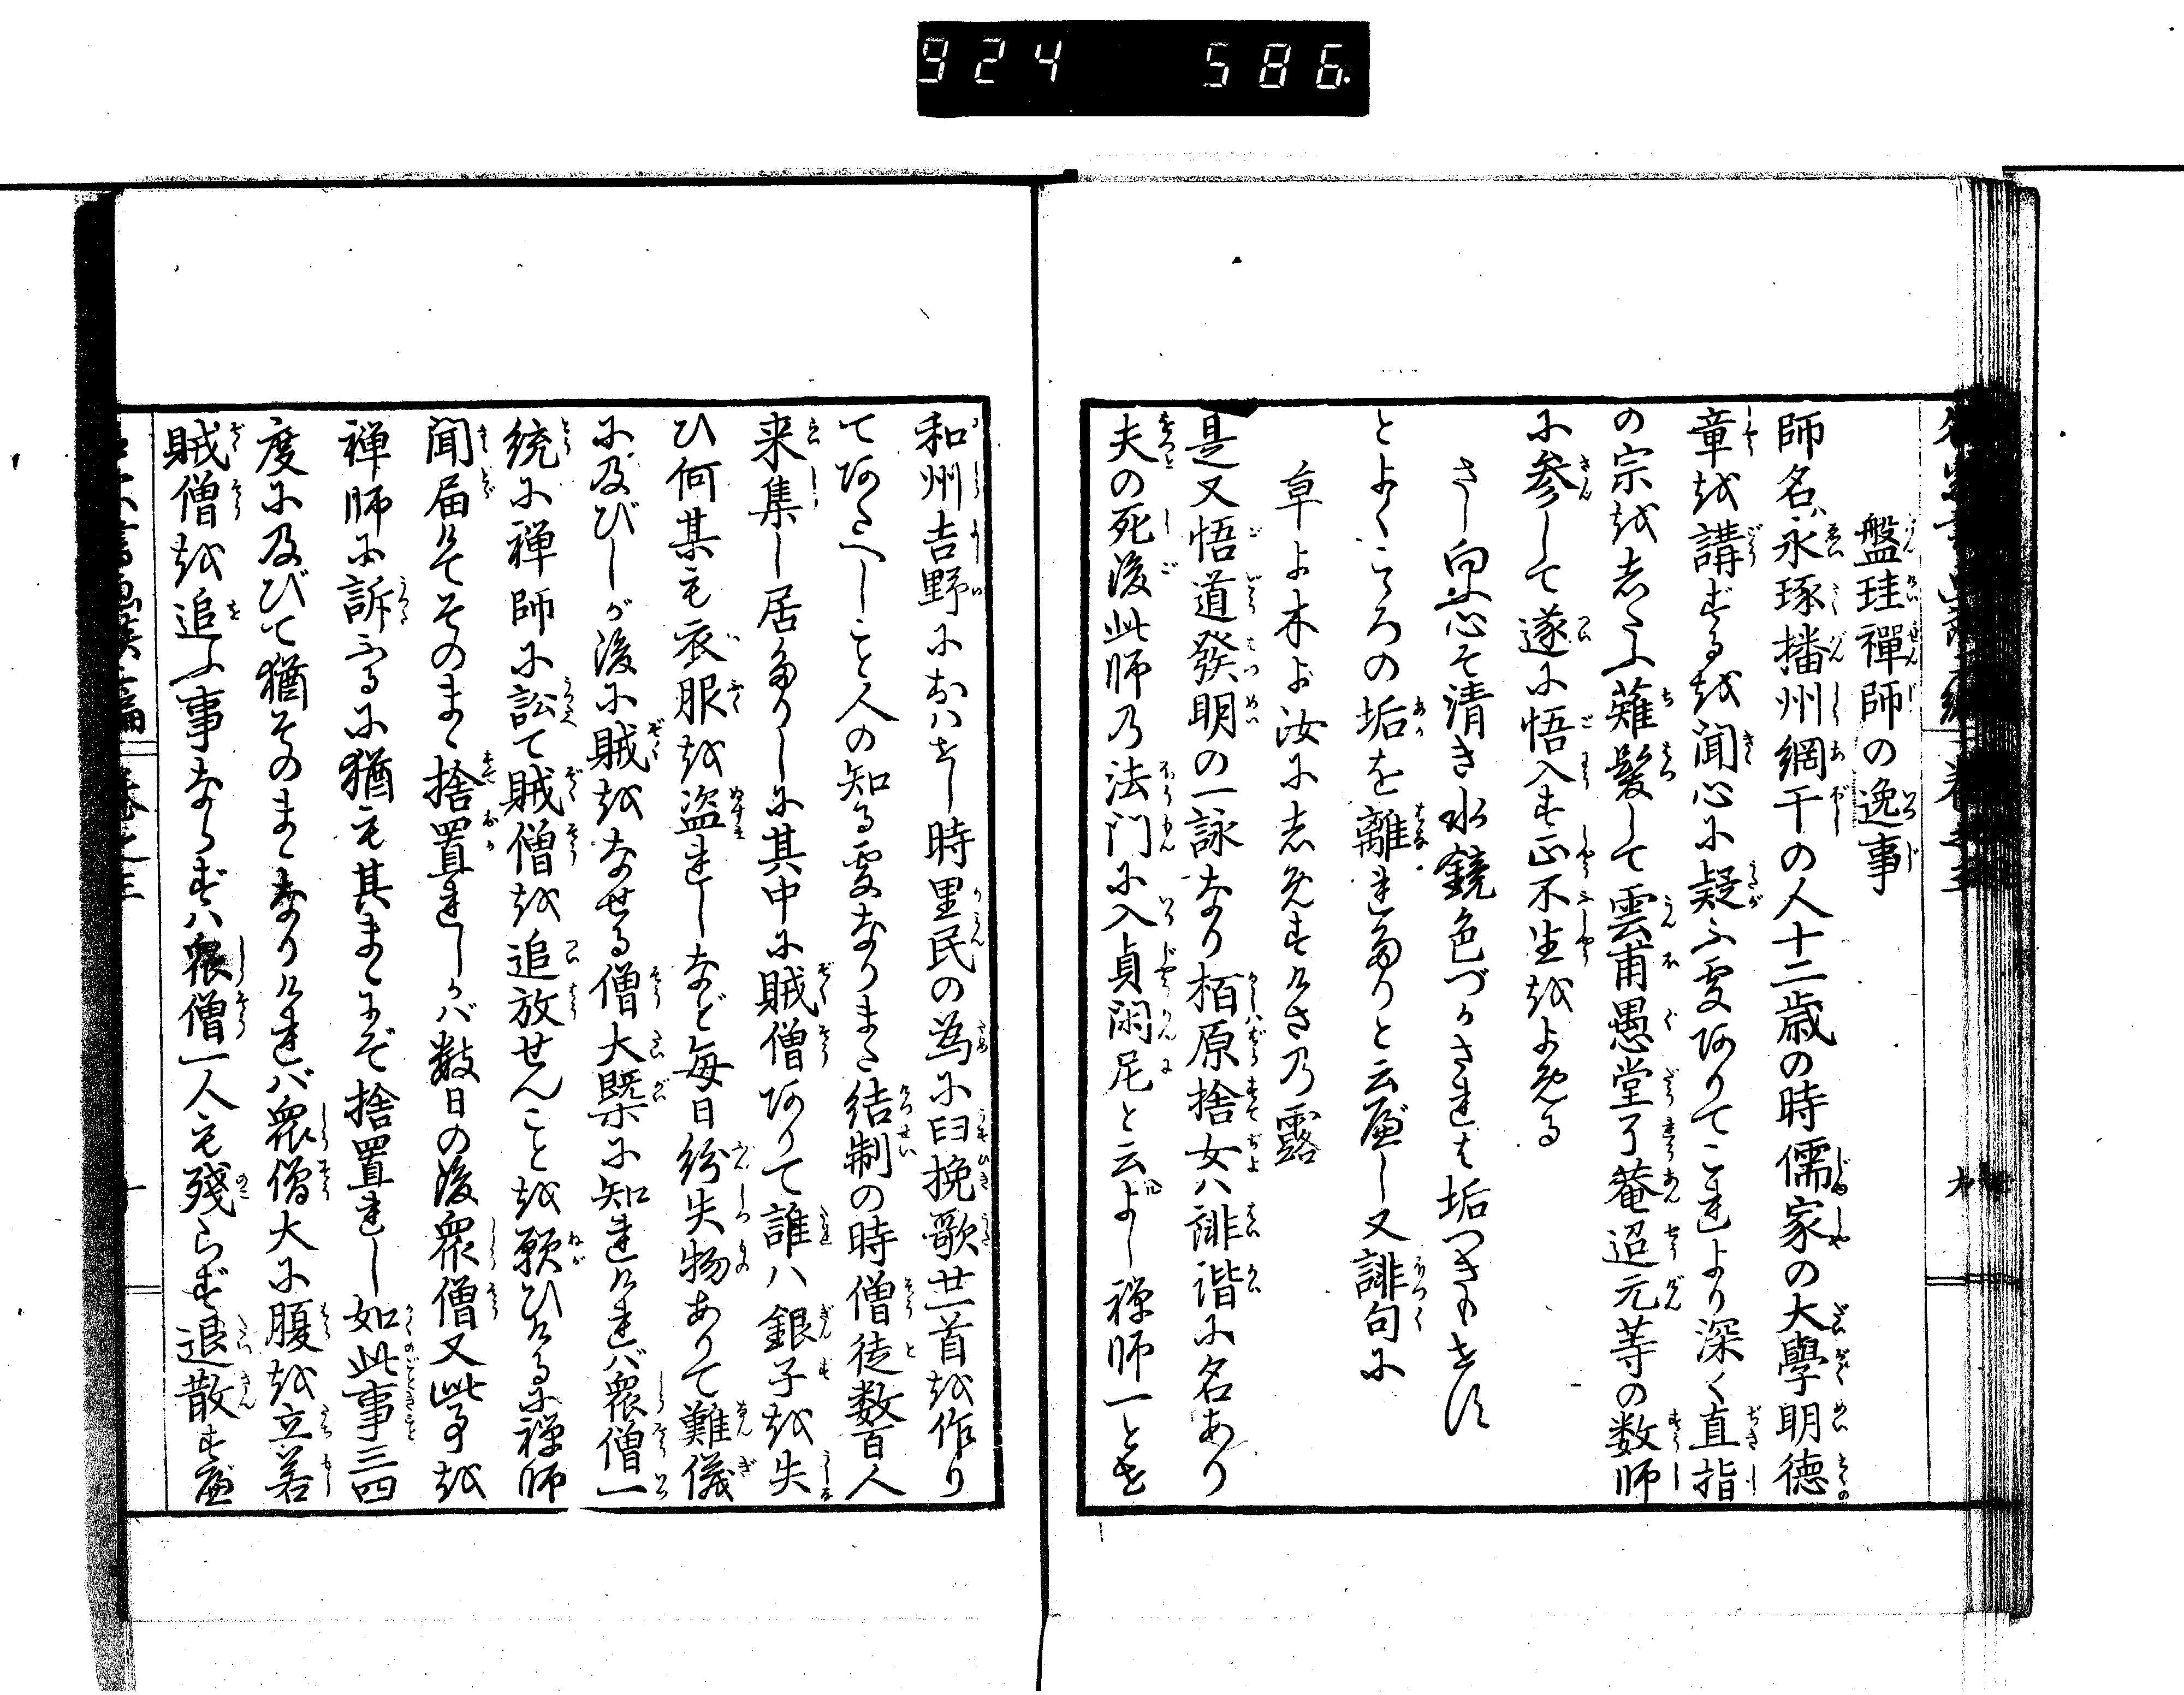 924 586.
盤珪禪師の逸事
師名ハ永琢播州網干の人十二歳の時儒家の大學明徳
章を講ずるを聞心に疑ふ事ありてこれより深く直指
の宗をしたふ薙髮して雲甫愚堂了菴迢元等の数師
に参して遂に悟入す正不生をよめる
さし向ふ心ぞ清き水鏡色づかざれば垢つきもせず
とよくこゝろの垢を離れたりと云べし又誹句に
草よ木よ汝にしめすけさの露
是又悟道發明の一詠なり栢原捨女ハ誹諧に名あり
夫の死後此師の法門に入貞閑尼と云よし禅師一とせ
和州吉野におハせし時里民の為に臼挽歌廿一首を作り
てあたへしこと人の知る事なりまた結制の時僧徒数百人
来集し居たりしに其中に賊僧ありて誰ハ銀子を失
ひ何某も衣服を盗れしなど毎日紛失物ありて難儀
に及びしが後に賊をなせる僧大槩に知れければ衆僧一
統に禅師に訟て賊僧を追放せんことを願ひけるに禅師
聞届けてそのまゝ捨置れしかバ数日の後衆僧又此事を
禅師に訴ふるに猶も其まゝにぞ捨置れし如此事三四
度に及びて猶そのまゝなりければ衆僧大に腹を立若
賊僧を追ふ事ならずハ衆僧一人も残らず退散すべ